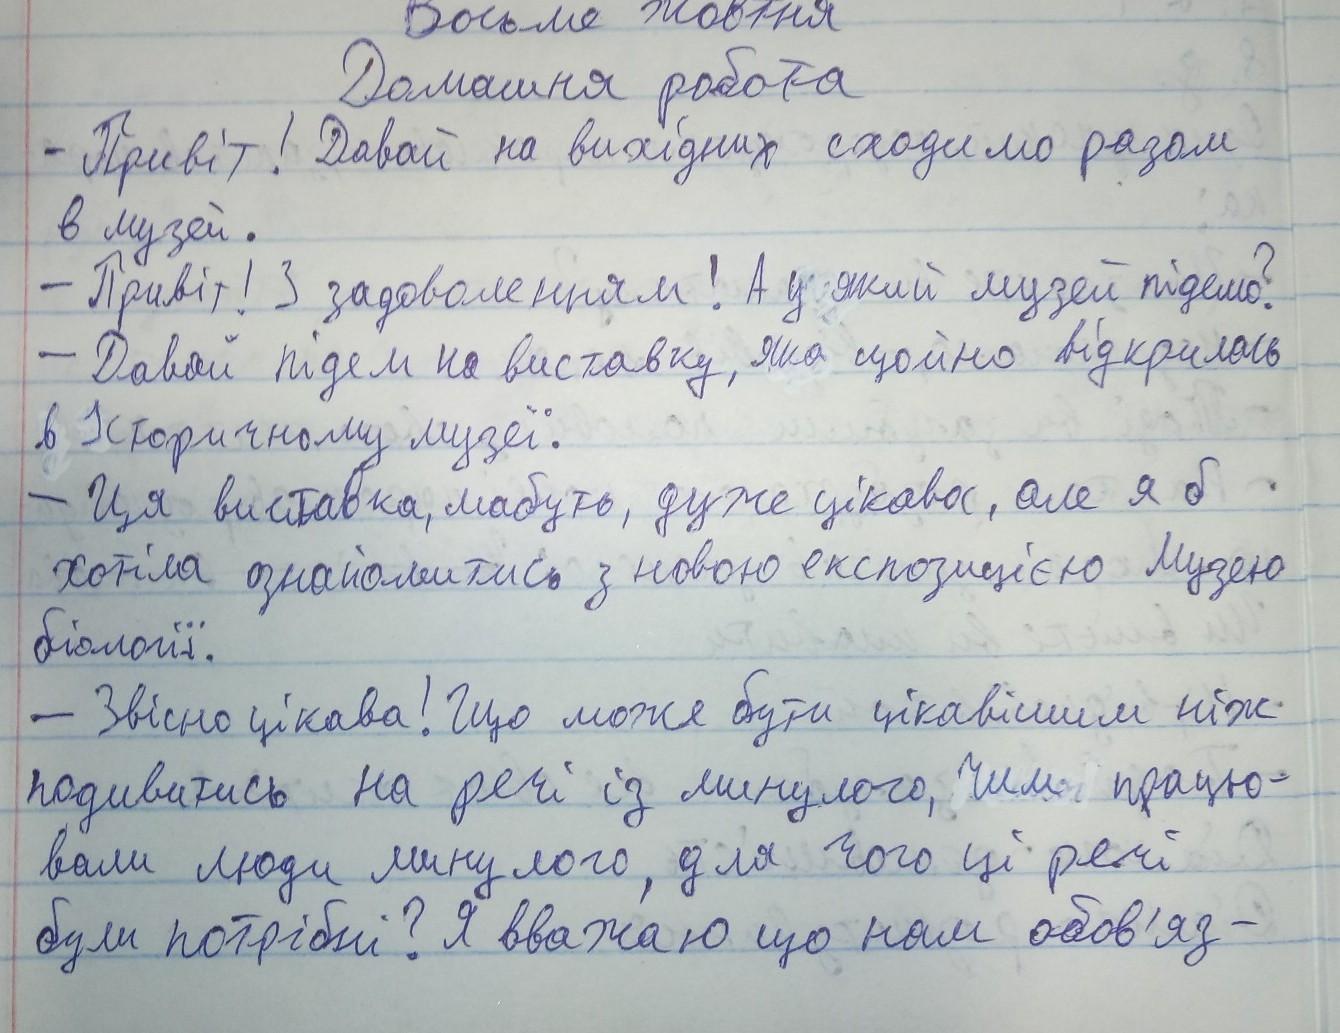 Восьме жовтня
Домашня робота
- Привіт! Давай на вихідних сходимо разом
в музей.
- Привіт! З задоволенням! А у який музей підемо?
- Давай підем на виставку, яка щойно відкрилась
в Історичному музеї.
- Ця виставка, мабуть, дуже цікава, але я б
хотіла ознайомитись з новою експозицією Музею
біології.
- Звісно цікава! Що може бути цікавішим ніж
подивитись на речі із минулого, чим працю-
вали люди минулого, для чого ці речі
були потрібні? Я вважаю що нам обов'яз-